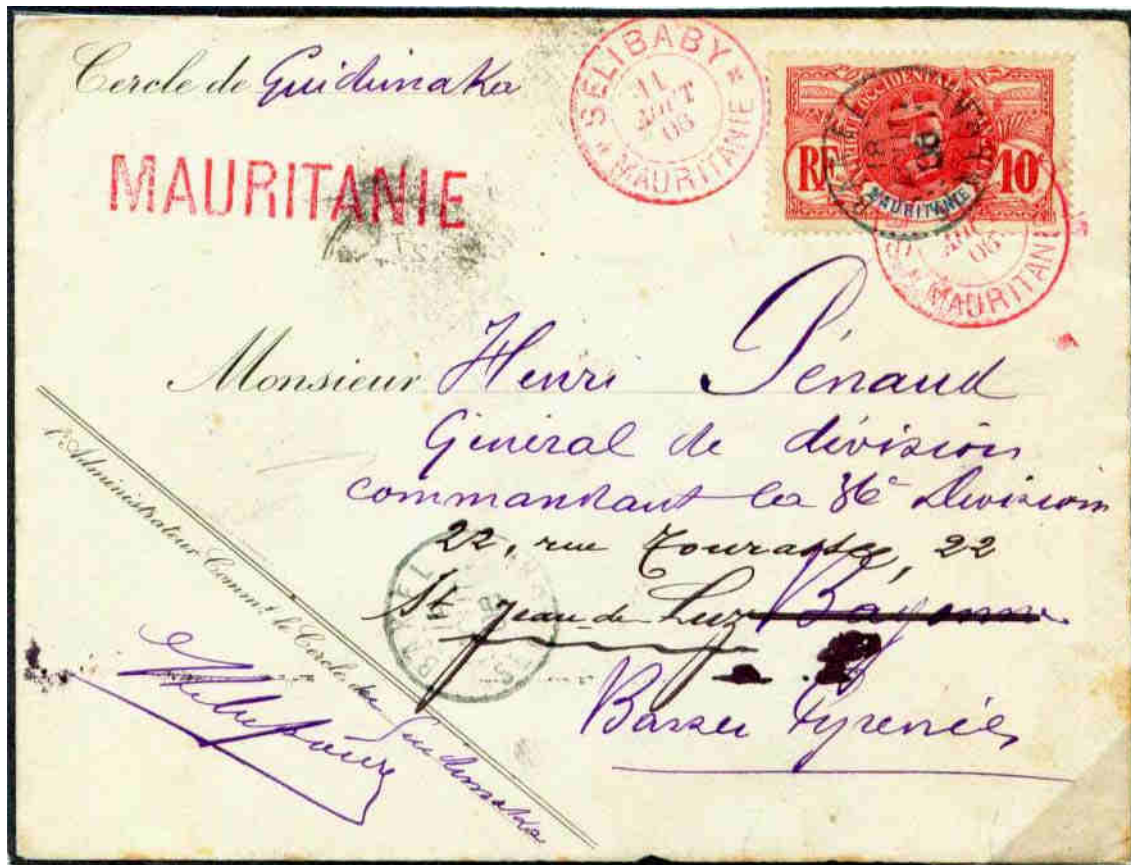 Cercle de Guidimaka
SELIBABY
11
AOUT
06
MAURITANIE
MAURITANIE
AFRIQUE OCCIDENTALE
RF
10c
MAURITANIE
BAKEL
06
AOU
06
MAURITANIE
Monsieur Henri Pénaud
Général de division
commandant la 36e Division
22, rue Tourasse, 22
St Jean de Luz Bayonne
BAKEL
Basses Pyrenées
l'Administrateur Commt. le Cercle du Guidimaka